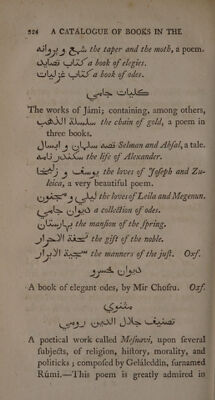 524 A CATALOGUE OF BOOKS IN THE
شمع و پروانه the taper and the moth, a poem.
کتاب قصاید a book of elegies.
کتاب غزلیات a book of odes.
کلیات جامی
The works of Jámi; containing, among others,
سلسلة الذهب the chain of gold, a poem in
three books.
قصه سلمان و ابسال Selman and Absal, a tale.
سکندر نامه the life of Alexander.
یوسف و زلیخا the loves of Joseph and Zu-
leica, a very beautiful poem.
لیلی و مجنون the loves of Leila and Megenun.
دیوان جامی a collection of odes.
بهارستان the mansion of the spring.
تحفة الاحرار the gift of the noble.
سبحة الابرار the manners of the just. Oxf.
دیوان خسرو
A book of elegant odes, by Mir Chosru. Oxf.
مثنوی
تصنیف جلال الدین رومی
A poetical work called Mesnavi, upon several
subjects, of religion, history, morality, and
politicks; composed by Geláleddîn, surnamed
Rúmi.—This poem is greatly admired in